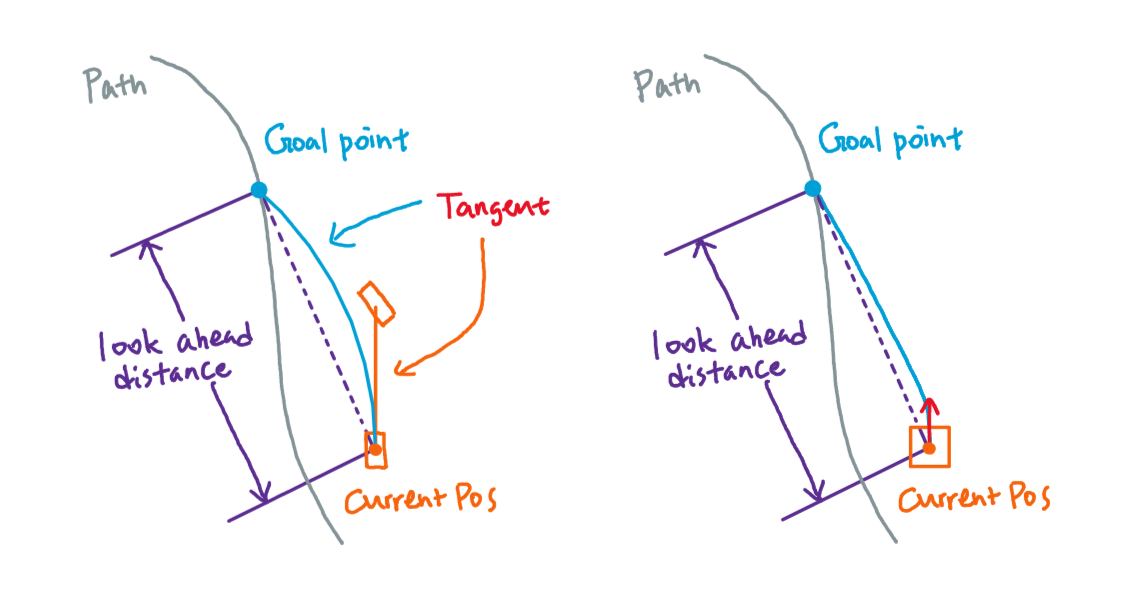 Path
Goal point
Tangent
look ahead
distance
Current Pos
Path
Goal point
look ahead
distance
Current Pos